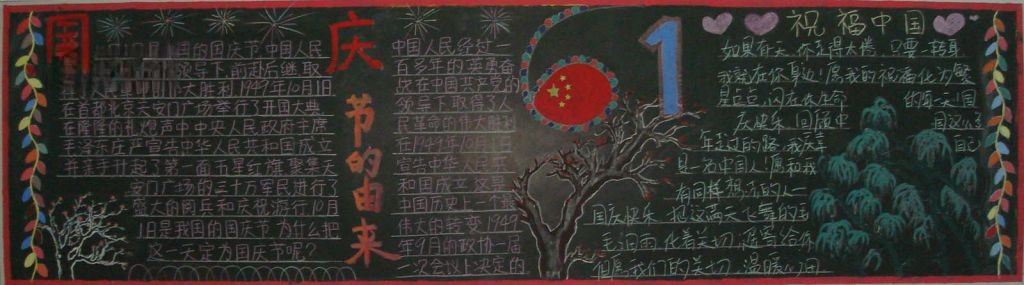 国庆
节的由来
国的国庆节中国人民
领导下前赴后继取
大胜利1949年10月1日
在首都北京天安门广场举行了开国大典
在隆隆的礼炮声中中央人民政府主席
毛泽东庄严宣告中华人民共和国成立
并亲手升起了第一面五星红旗聚集天
安门广场的三十万军民进行了
盛大的阅兵和庆祝游行10月
1日是我国的国庆节为什么把
这一天定为国庆节呢?
中国人民经过一
百多年的英勇奋
战在中国共产党的
领导下取得了人
民革命的伟大胜利
在1949年10月1日
宣告中华人民共
和国成立这是
中国历史上一个
伟大的转变1949
年9月的政协一届
一次会议上决定的
1
祝福中国
如果有一天你走得太倦只要一转身
我就在你身边!愿我的祝福化为繁
星点点闪在你生命的每一天!国
庆快乐回顾中国这么多
年走过的路我庆幸自己
是一名中国人!愿和我
有同样想法的人
国庆快乐把这满天飞舞的毛
毛细雨化着关切遥寄给你
但愿我们的关切温暖心间